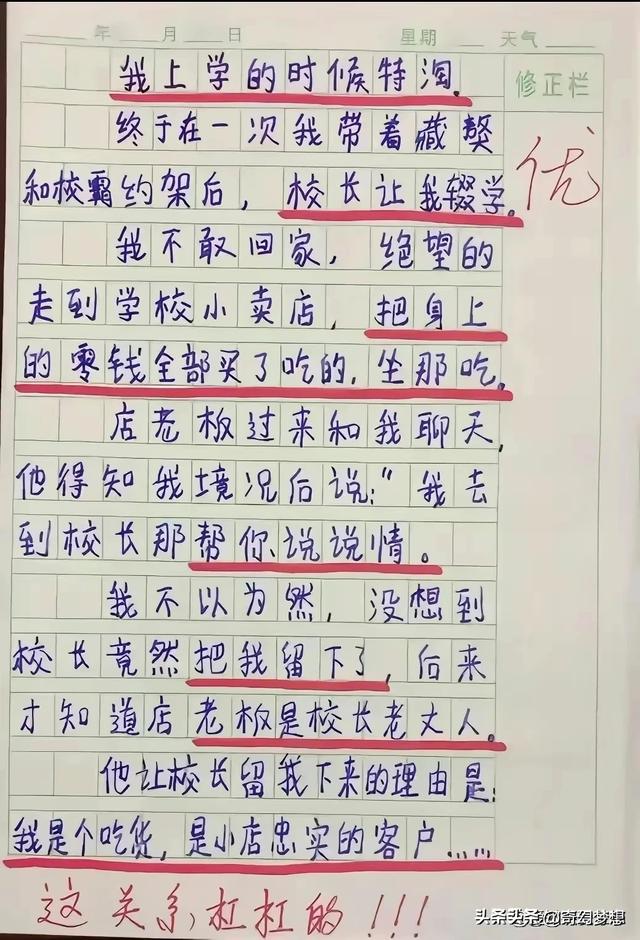 年 月 日 星期 天气
我上学的时候特淘。
修正栏
终于在一次我带着藏獒
优
和校霸约架后，校长让我辍学。
我不敢回家，绝望的
走到学校小卖店，把身上
的零钱全部买了吃的，坐那吃。
店老板过来和我聊天，
他得知我境况后说：“我去
到校长那帮你说说情。
我不以为然，没想到
校长竟然把我留下了，后来
才知道店老板是校长老丈人。
他让校长留我下来的理由是：
我是个吃货，是小店忠实的客户……
这关系，杠杠的！！！
头条 @奇幻梦想